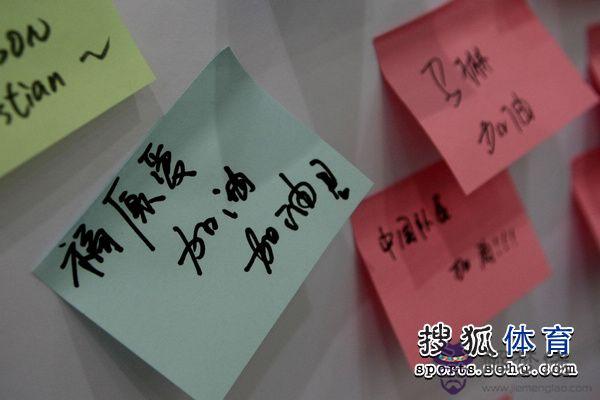 son
stian ~
福原爱
加油
加油!!
马琳
加油
中国队
加油!!!
搜狐体育
sports.sohu.com
www.jiemenglao.com